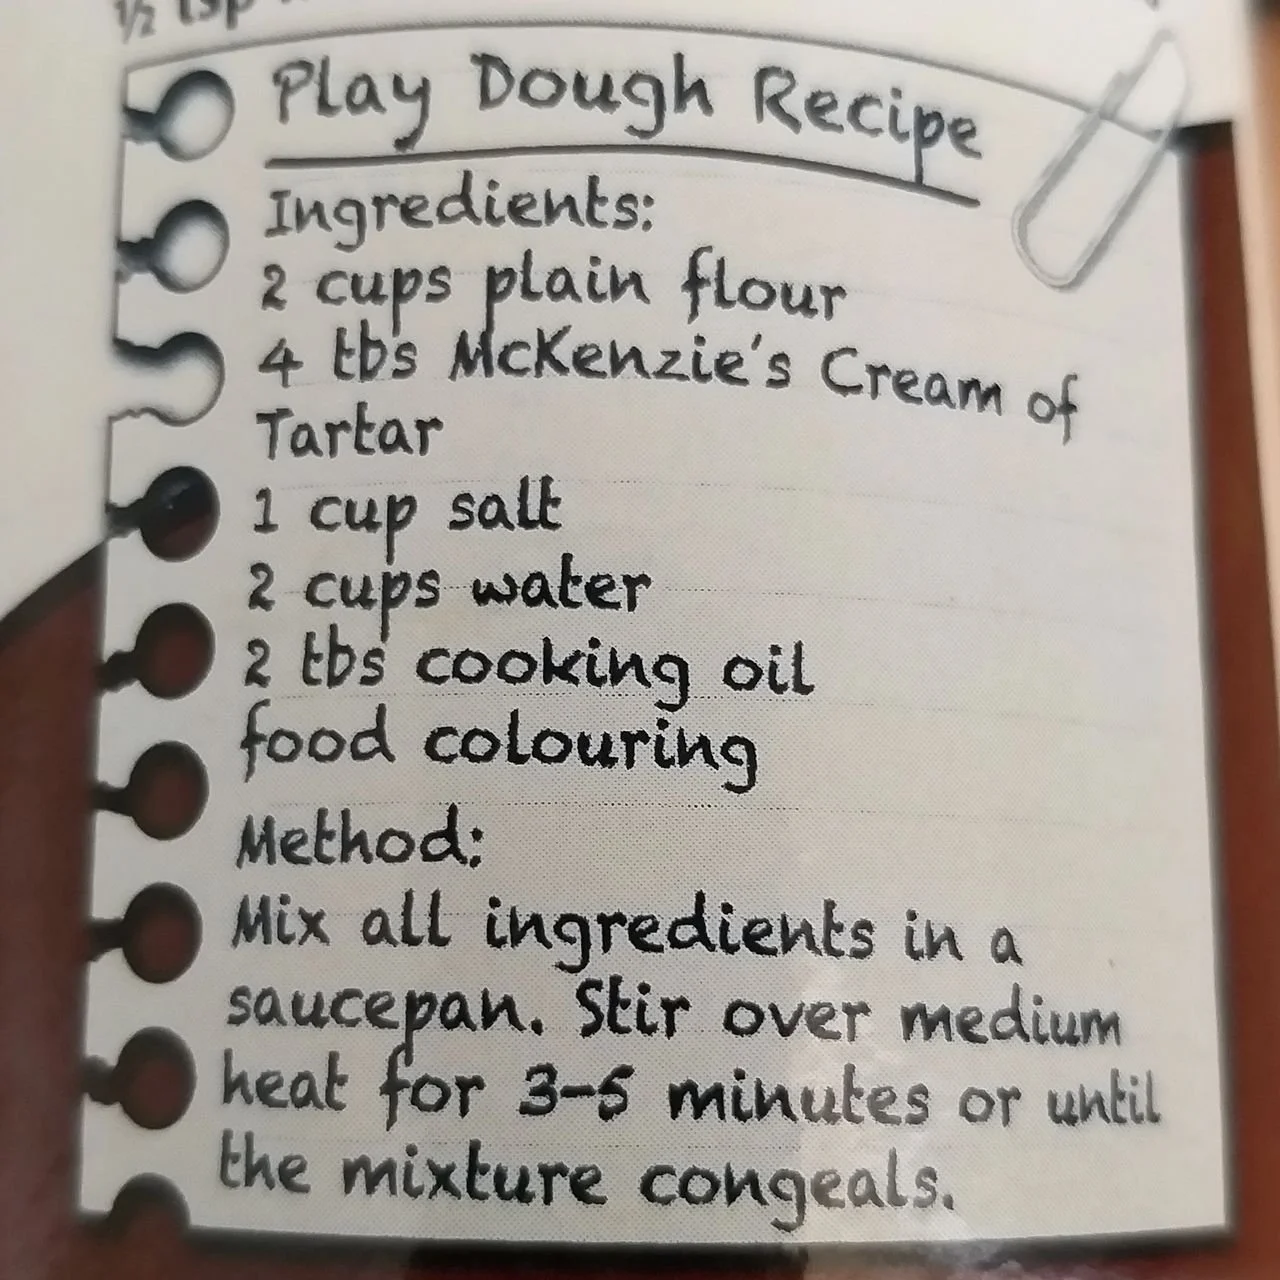 ½ tsp
Play Dough Recipe
Ingredients:
2 cups plain flour
4 tbs McKenzie's Cream of
Tartar
1 cup salt
2 cups water
2 tbs cooking oil
food colouring
Method:
Mix all ingredients in a
saucepan. Stir over medium
heat for 3-5 minutes or until
the mixture congeals.